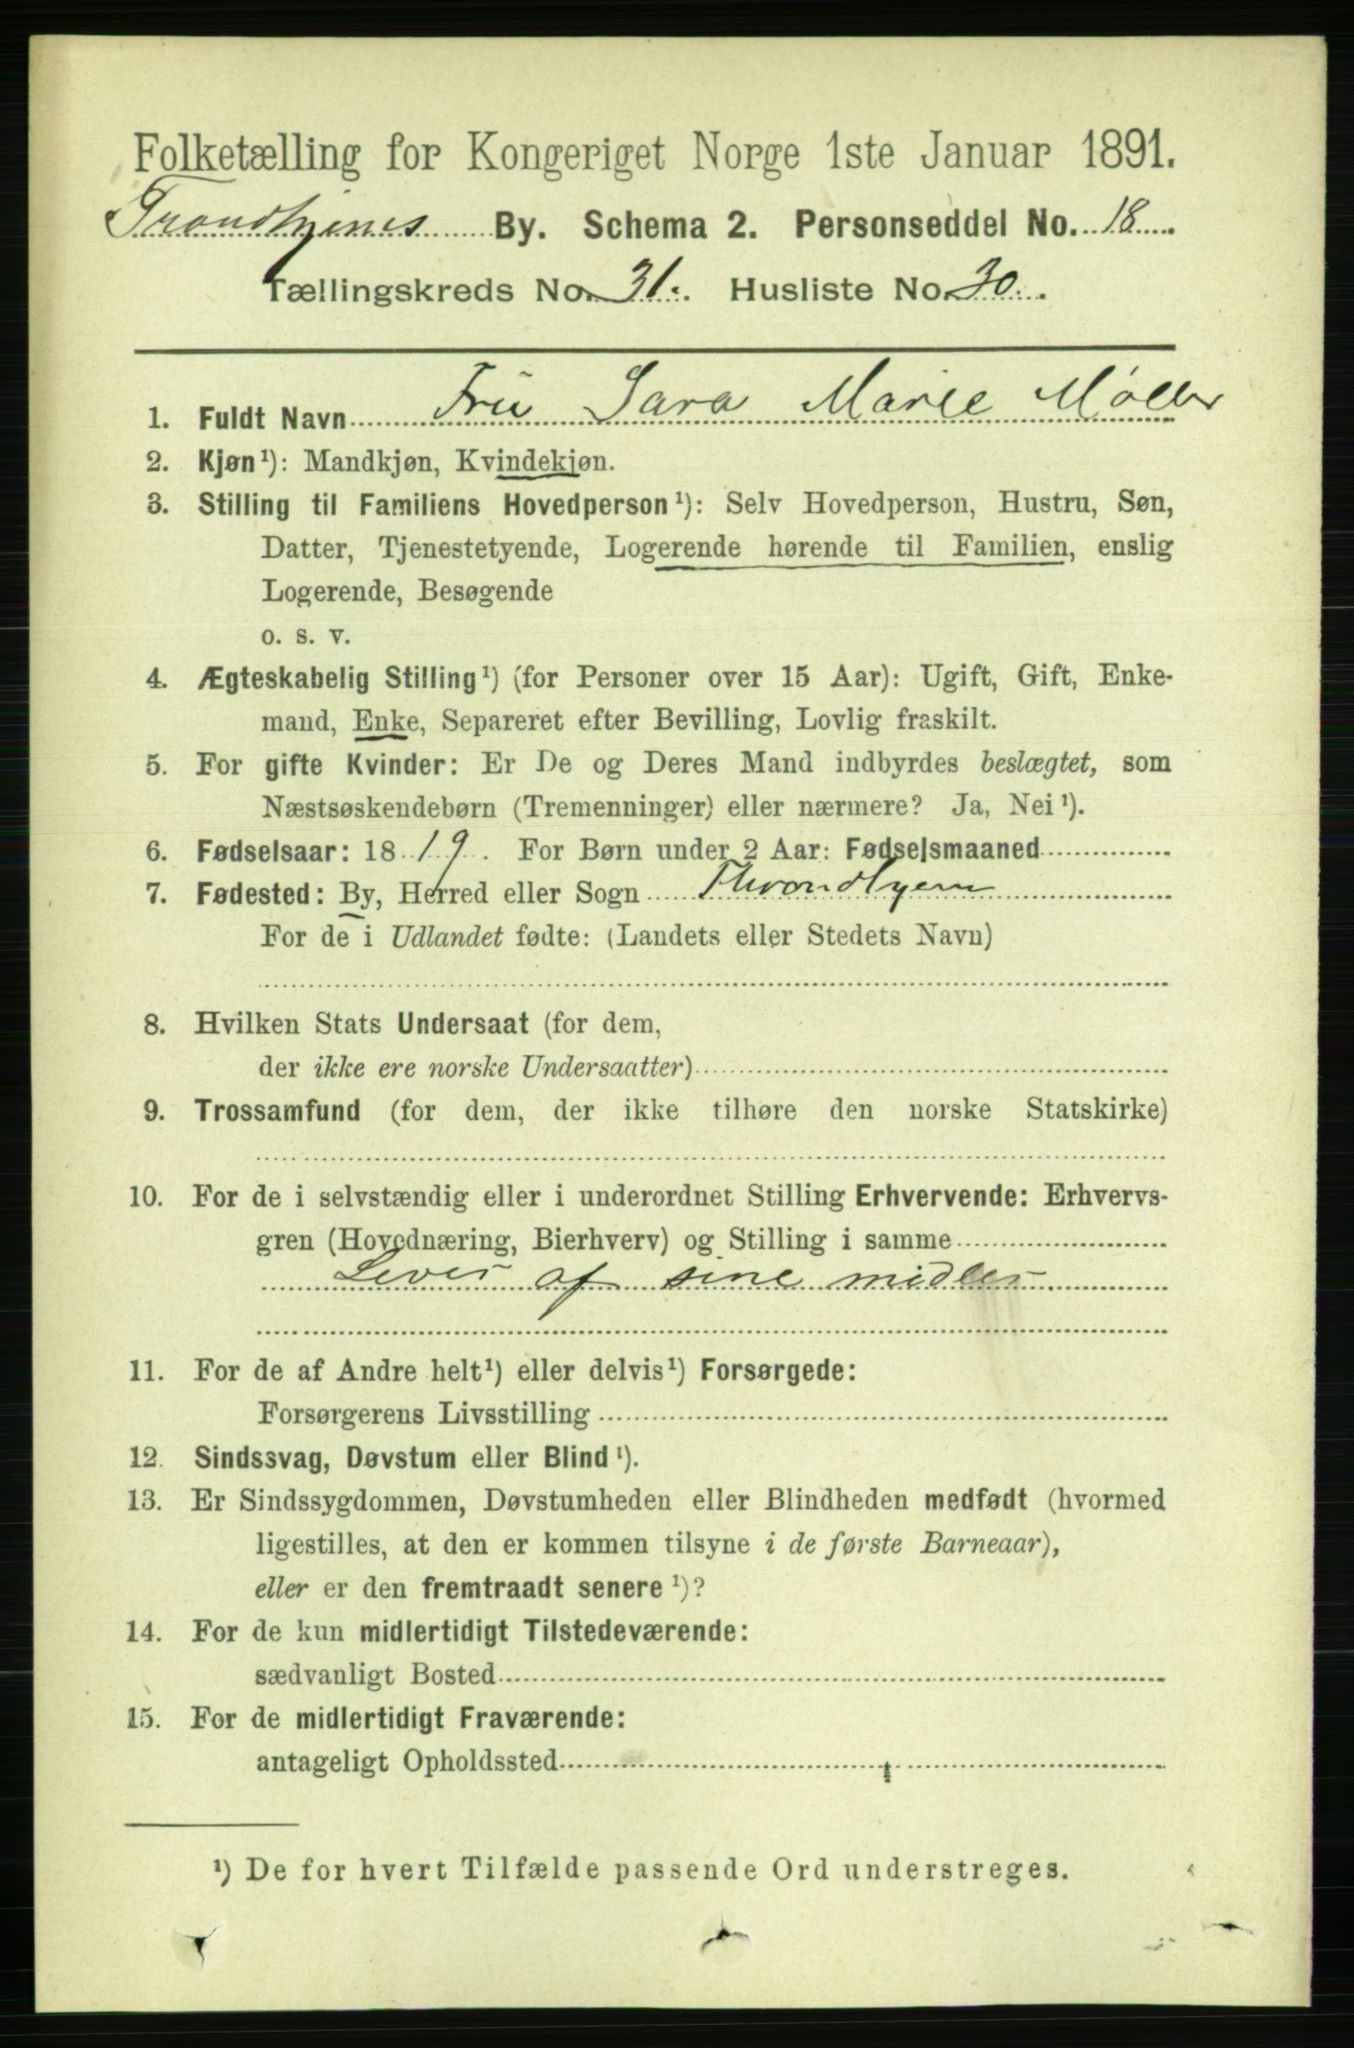 Folketælling for Kongeriget Norge 1ste Januar 1891.
Trondhjems By. Schema 2. Personseddel No. 18
Tællingskreds No. 31. Husliste No. 30.
1. Fuldt Navn Fru Sara Marie Møller
2. Kjøn¹): Mandkjøn, Kvindekjøn.
3. Stilling til Familiens Hovedperson¹): Selv Hovedperson, Hustru, Søn,
Datter, Tjenestetyende, Logerende hørende til Familien, enslig
Logerende, Besøgende
o. s. v.
4. Ægteskabelig Stilling¹) (for Personer over 15 Aar): Ugift, Gift, Enke-
mand, Enke, Separeret efter Bevilling, Lovlig fraskilt.
5. For gifte Kvinder: Er De og Deres Mand indbyrdes beslægtet, som
Næstsøskendebørn (Tremenninger) eller nærmere? Ja, Nei¹).
6. Fødselsaar: 1819. For Børn under 2 Aar: Fødselsmaaned
7. Fødested: By, Herred eller Sogn Throndhjem
For de i Udlandet fødte: (Landets eller Stedets Navn)
8. Hvilken Stats Undersaat (for dem,
der ikke ere norske Undersaatter)
9. Trossamfund (for dem, der ikke tilhøre den norske Statskirke)
10. For de i selvstændig eller i underordnet Stilling Erhvervende: Erhvervs-
gren (Hovednæring, Bierhverv) og Stilling i samme
Lever af sine midler
11. For de af Andre helt¹) eller delvis¹) Forsørgede:
Forsørgerens Livsstilling
12. Sindssvag, Døvstum eller Blind¹).
13. Er Sindssygdommen, Døvstumheden eller Blindheden medfødt (hvormed
ligestilles, at den er kommen tilsyne i de første Barneaar),
eller er den fremtraadt senere¹)?
14. For de kun midlertidigt Tilstedeværende:
sædvanligt Bosted
15. For de midlertidigt Fraværende:
antageligt Opholdssted
¹) De for hvert Tilfælde passende Ord understreges.